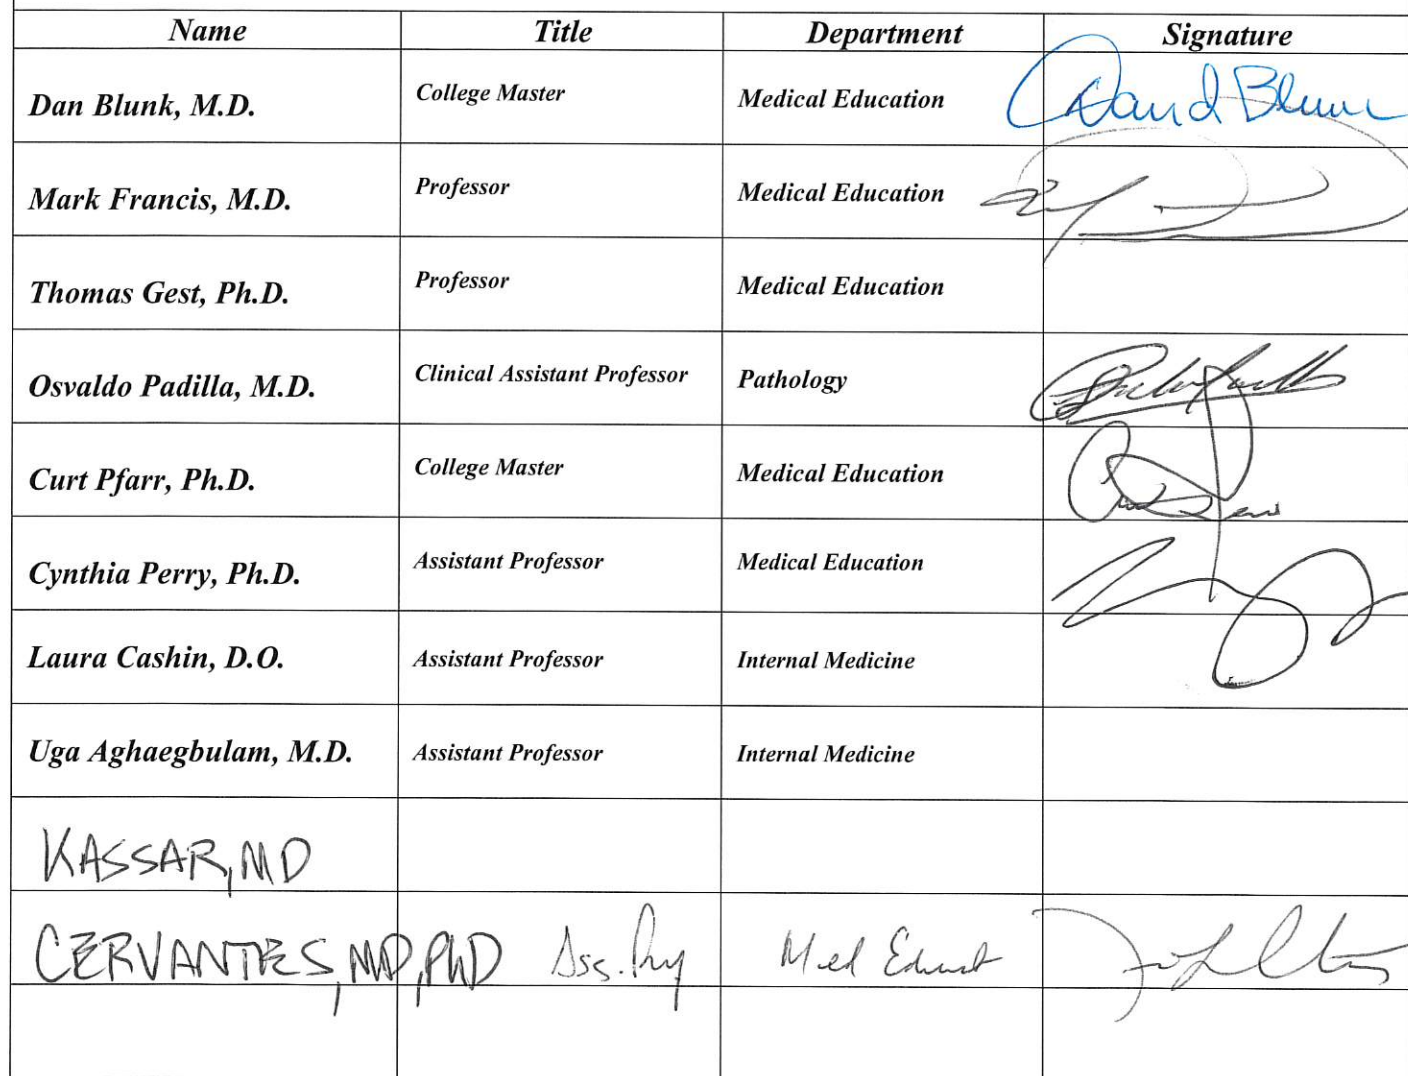 Name Title Department Signature
Dan Blunk, M.D. College Master Medical Education David Blunk
Mark Francis, M.D. Professor Medical Education
Thomas Gest, Ph.D. Professor Medical Education
Osvaldo Padilla, M.D. Clinical Assistant Professor Pathology
Curt Pfarr, Ph.D. College Master Medical Education
Cynthia Perry, Ph.D. Assistant Professor Medical Education
Laura Cashin, D.O. Assistant Professor Internal Medicine
Uga Aghaegbulam, M.D. Assistant Professor Internal Medicine
KASSAR, MD
CERVANTES, MD, PhD Ass. Med